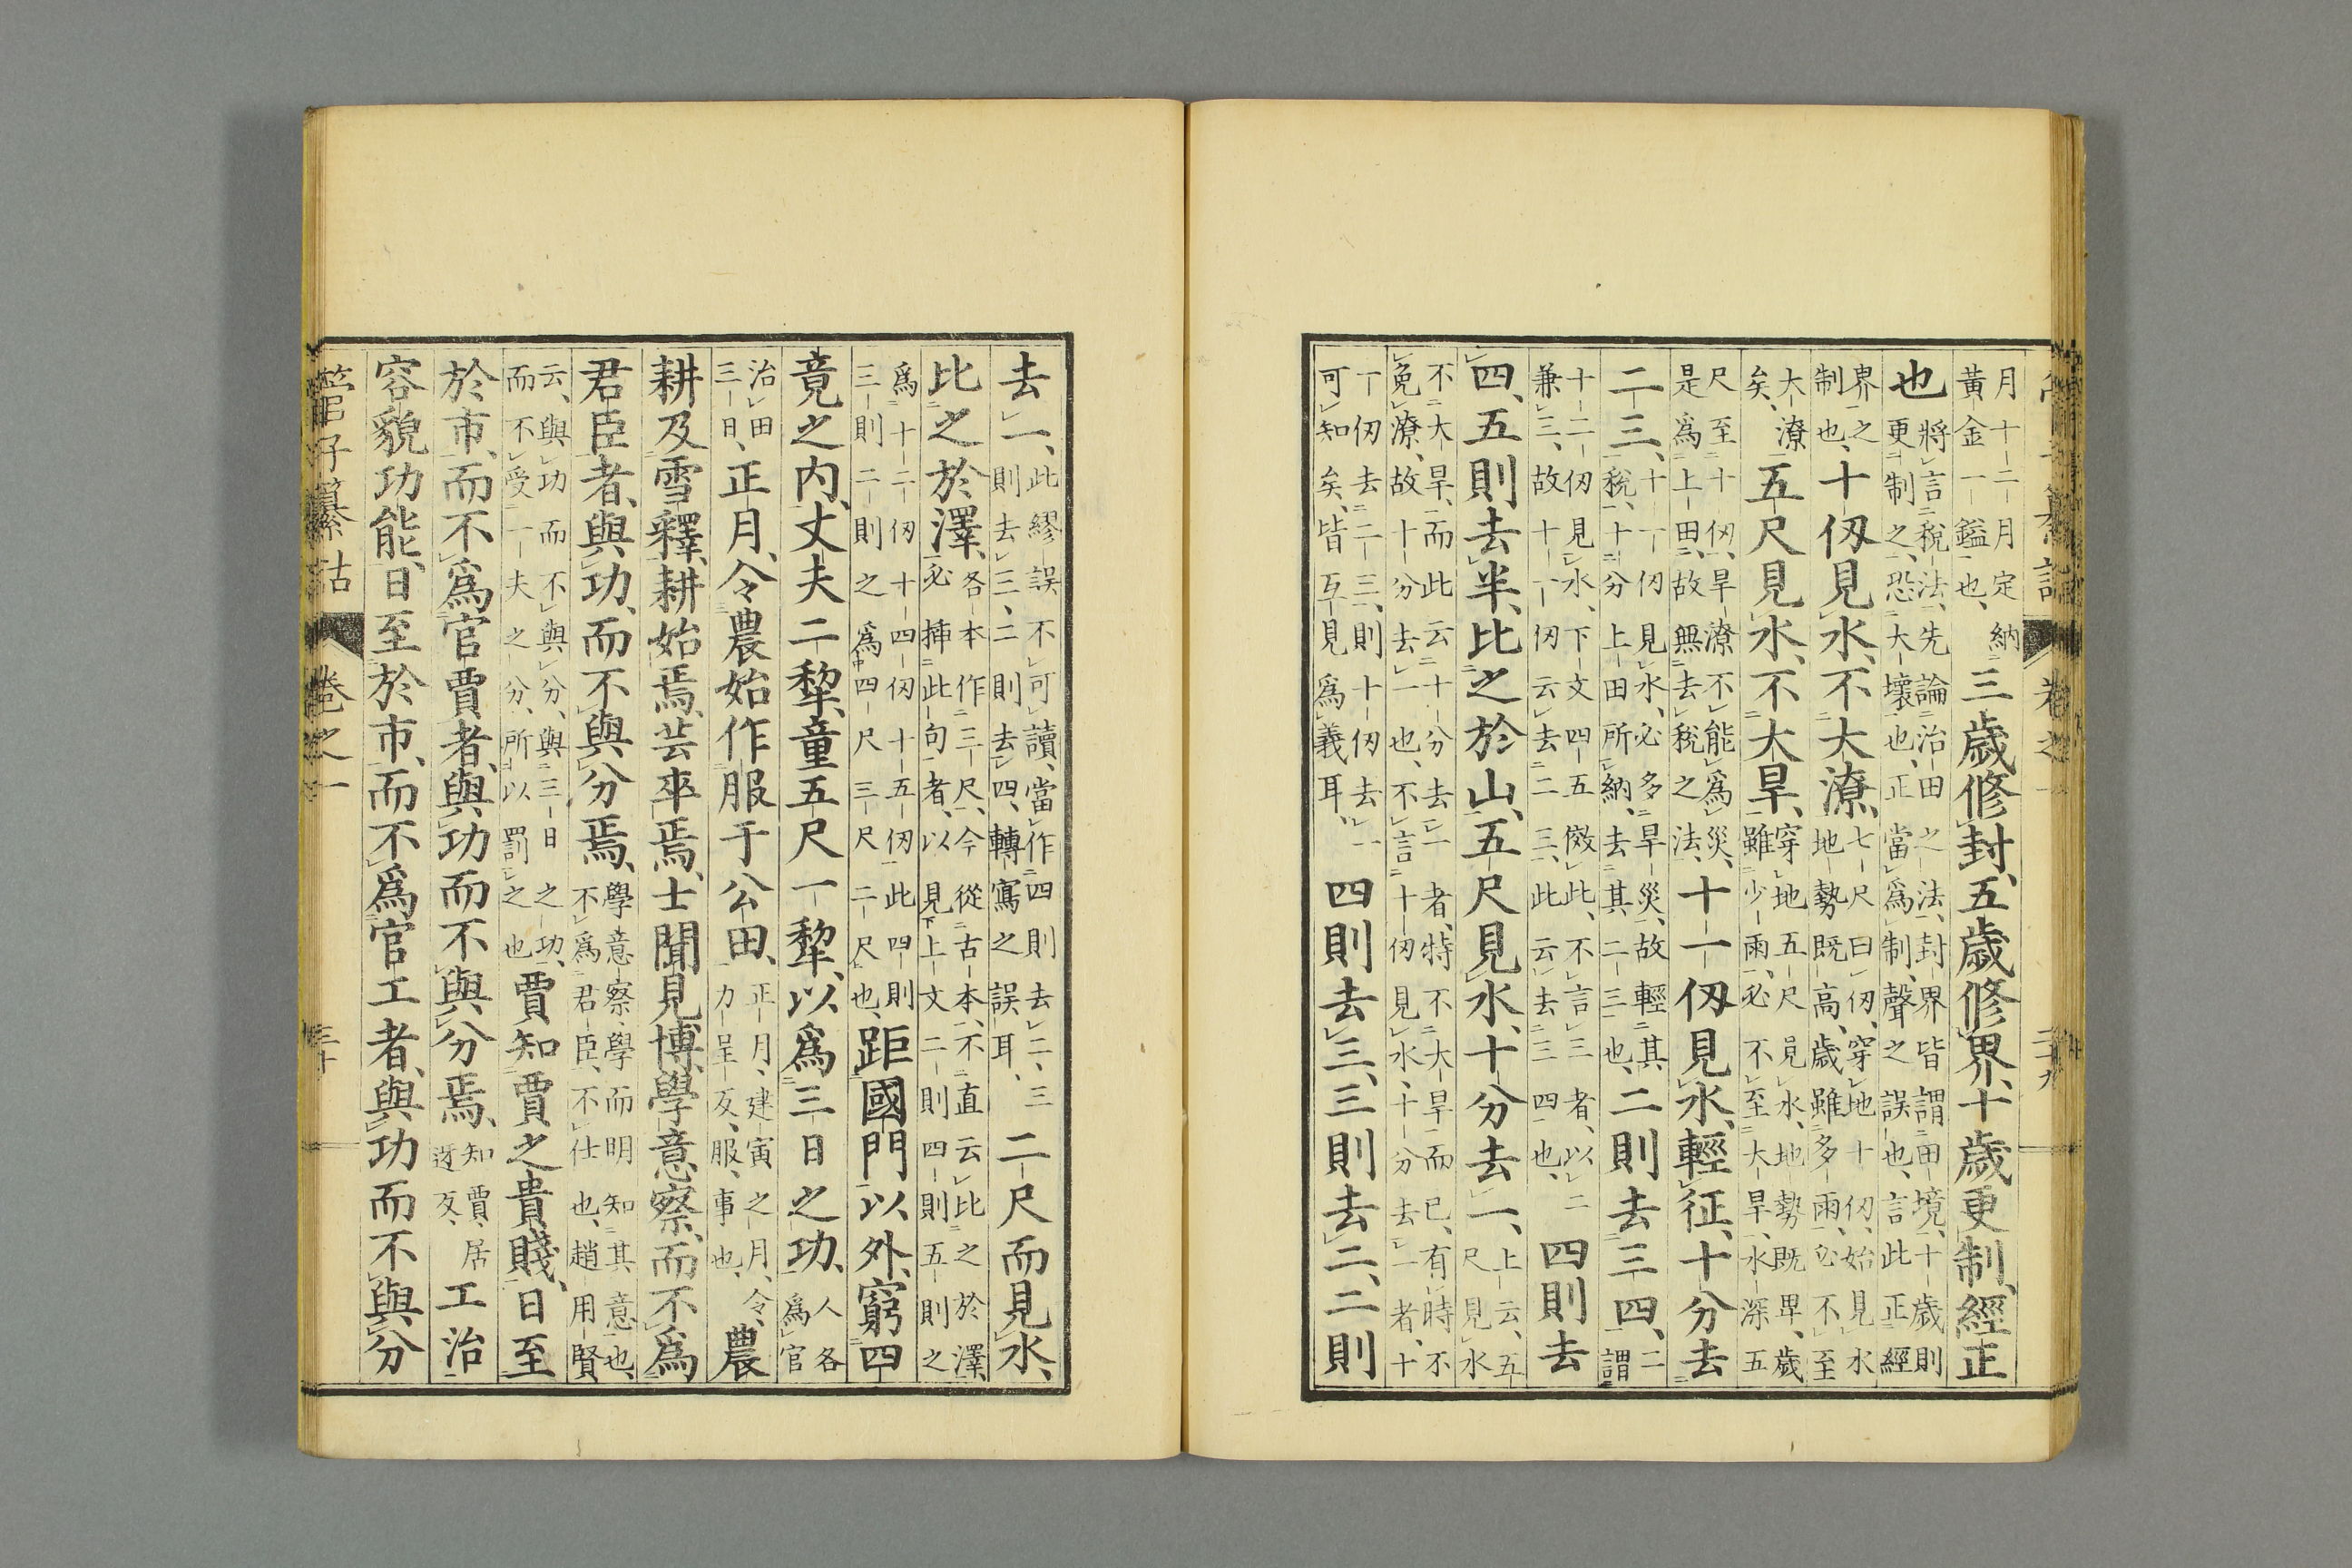 卷之一 二十九
月十二月定納黃金一鎰也、三歲修封、五歲修界、十歲更制、經正
也將言稅法、先論治田之法、封界皆謂田境、十歲則更制之、恐大壞也、正當爲制、聲之誤也、言此正經
界之制也、十仞見水、不大潦、七尺曰仞、穿地十仞、始見水地勢既高、歲雖多雨、必不至
大潦矣、五尺見水、不大旱、穿地五尺見水、地勢既卑、歲雖少雨、必不至大旱、水深五
尺至十仞、旱潦不能爲災、是爲上田、故無去稅之法、十一仞見水、輕征、十分去
二三、十一仞見水、必多旱災、故輕其稅、十分上田所納、去其二三也、二則去三四、二謂
十二仞見水、下文四五倣此、不言三者、以二兼三、故十一仞云去二三、此云去三四也、四則去
四、五則去半、比之於山、五尺見水、十分去一、上云、五尺見水
不大旱、而此云十分去一者、特不大旱而已、有時不免潦、故十分去一也、不言十仞見水、十分去一者、十
一仞去二三、則十仞去一可知矣、皆互見爲義耳、四則去三、三則去二、二則
去一、此繆誤不可讀、當作四則去二、三則去三、二則去四、轉寫之誤耳、二尺而見水、
比之於澤、各本作三尺、今從古本、不直云比之於澤、必挿此句者、以見上文二則四則五則之
爲十二仞十四仞十五仞此四則三則二則之爲四尺三尺二尺也、距國門以外、窮四
竟之內、丈夫二犂、童五尺一犂、以爲三日之功、人各爲官
治田三日、正月、令農始作、服于公田、正月、建寅之月、令、力呈反、服、事也、農
耕及雪釋、耕始焉、芸卒焉、士聞見博、學意察、而不爲
君臣者、與功、而不與分焉、學意察、學而明知其意也、不爲君臣、不仕也、趙用賢
云、與功而不與分、與三日之功、而不受一夫之分、所以罰之也賈知賈之貴賤、日至
於市、而不爲官賈者、與功而不與分焉、知賈、居迓反、工治
容貌功能、日至於市、而不爲官工者、與功而不與分
管子纂詁 卷之一 三十